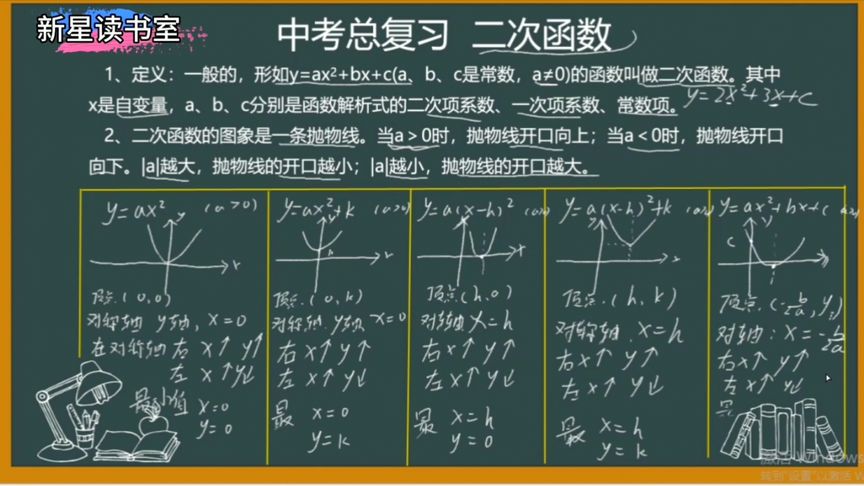 新星读书室
中考总复习 二次函数
1、定义：一般的，形如y=ax²+bx+c(a、b、c是常数，a≠0)的函数叫做二次函数。其中
x是自变量，a、b、c分别是函数解析式的二次项系数、一次项系数、常数项。
y=2x²+3x+c
2、二次函数的图象是一条抛物线。当a＞0时，抛物线开口向上；当a＜0时，抛物线开口
向下。|a|越大，抛物线的开口越小；|a|越小，抛物线的开口越大。
y=ax² (a>0)
y
x
顶点.(0,0)
对称轴 y轴, x=0
在对称轴右 x↑ y↑
左 x↑y↓
最小值 x=0
y=0
y=ax²+k (a>0)
y
x
顶点.(0,k)
对称轴.y轴 x=0
右 x↑ y↑
左 x↑ y↓
最 x=0
y=k
y=a(x-h)²
x
顶点(h,0)
对轴 x=h
右 x↑ y↑
左 x↑ y↓
最 x=h
y=0
y=a(x-h)²+k
y
x
顶点.(h,k)
对称轴.x=h
右x↑ y↑
左x↑ y↓
最 x=h
y=k
y=ax²+bx+c
y
c
顶点.(-b/2a, y)
对轴: x=-b/2a
右x↑ y↑
左x↑ y↓
激活 Windows
转到"设置"以激活